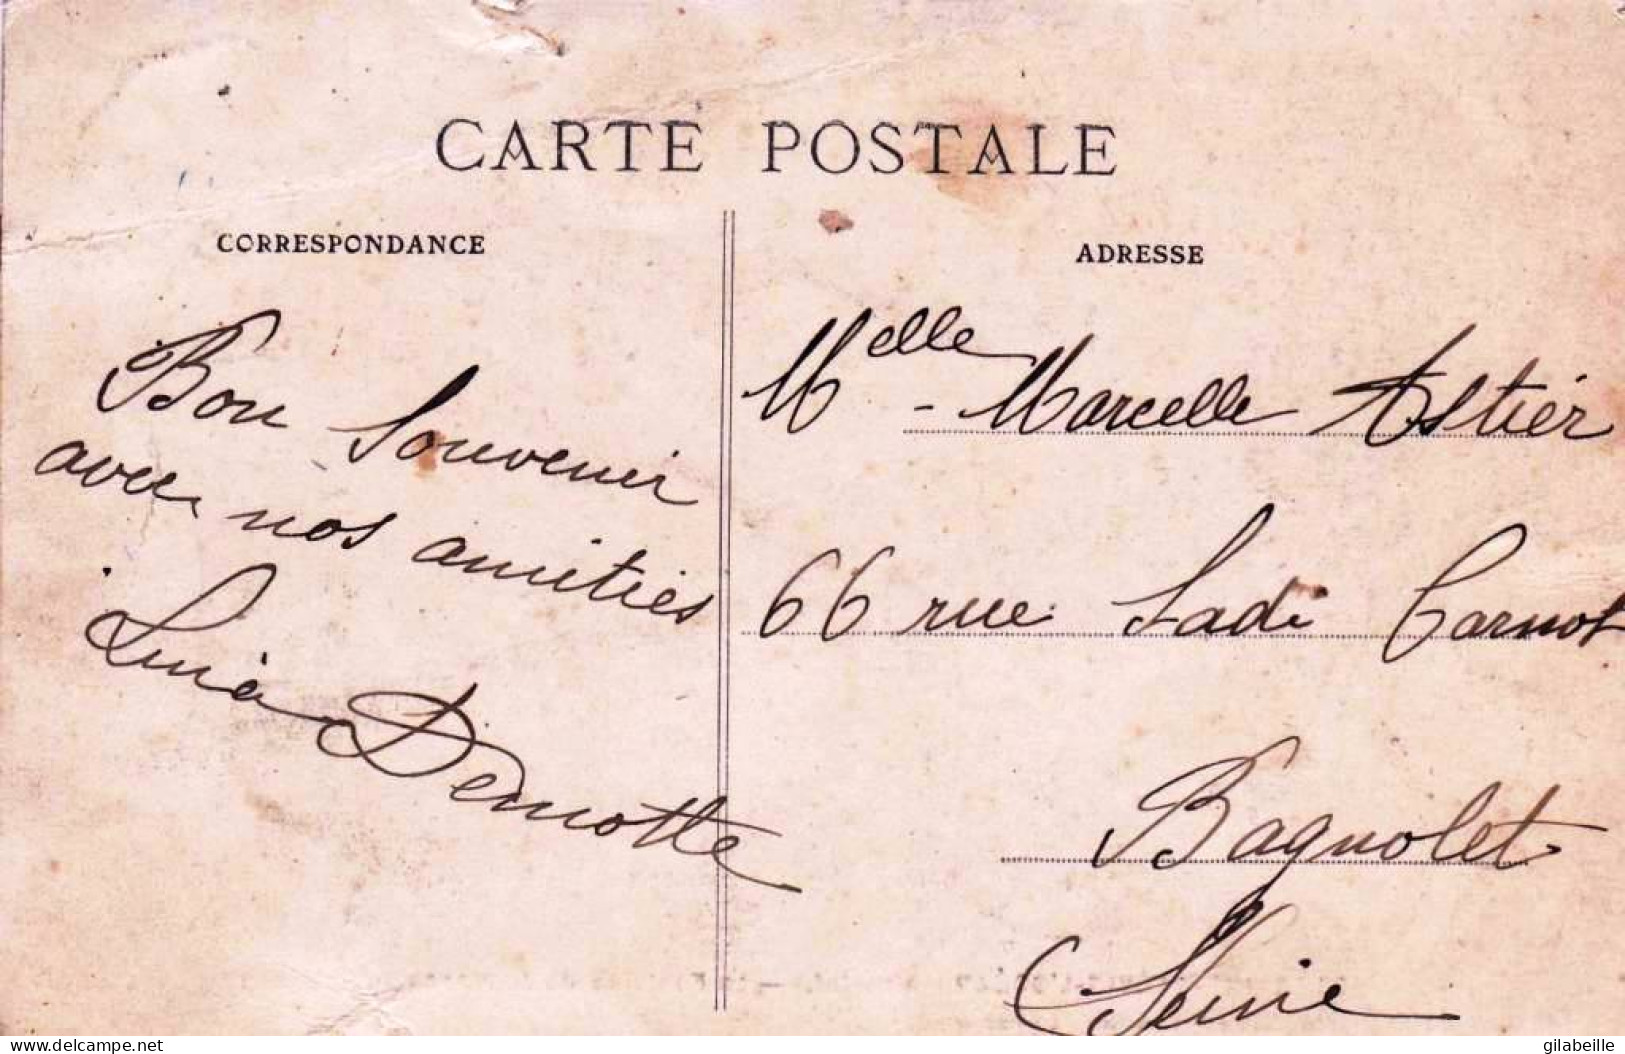 CARTE POSTALE
CORRESPONDANCE
Bon Souvenir
avec nos amitiés
Demotte
ADRESSE
Melle - Marcelle Astier
66 rue Sadi Carnot
Bagnolet
Seine
delcampe.net
gilabeille